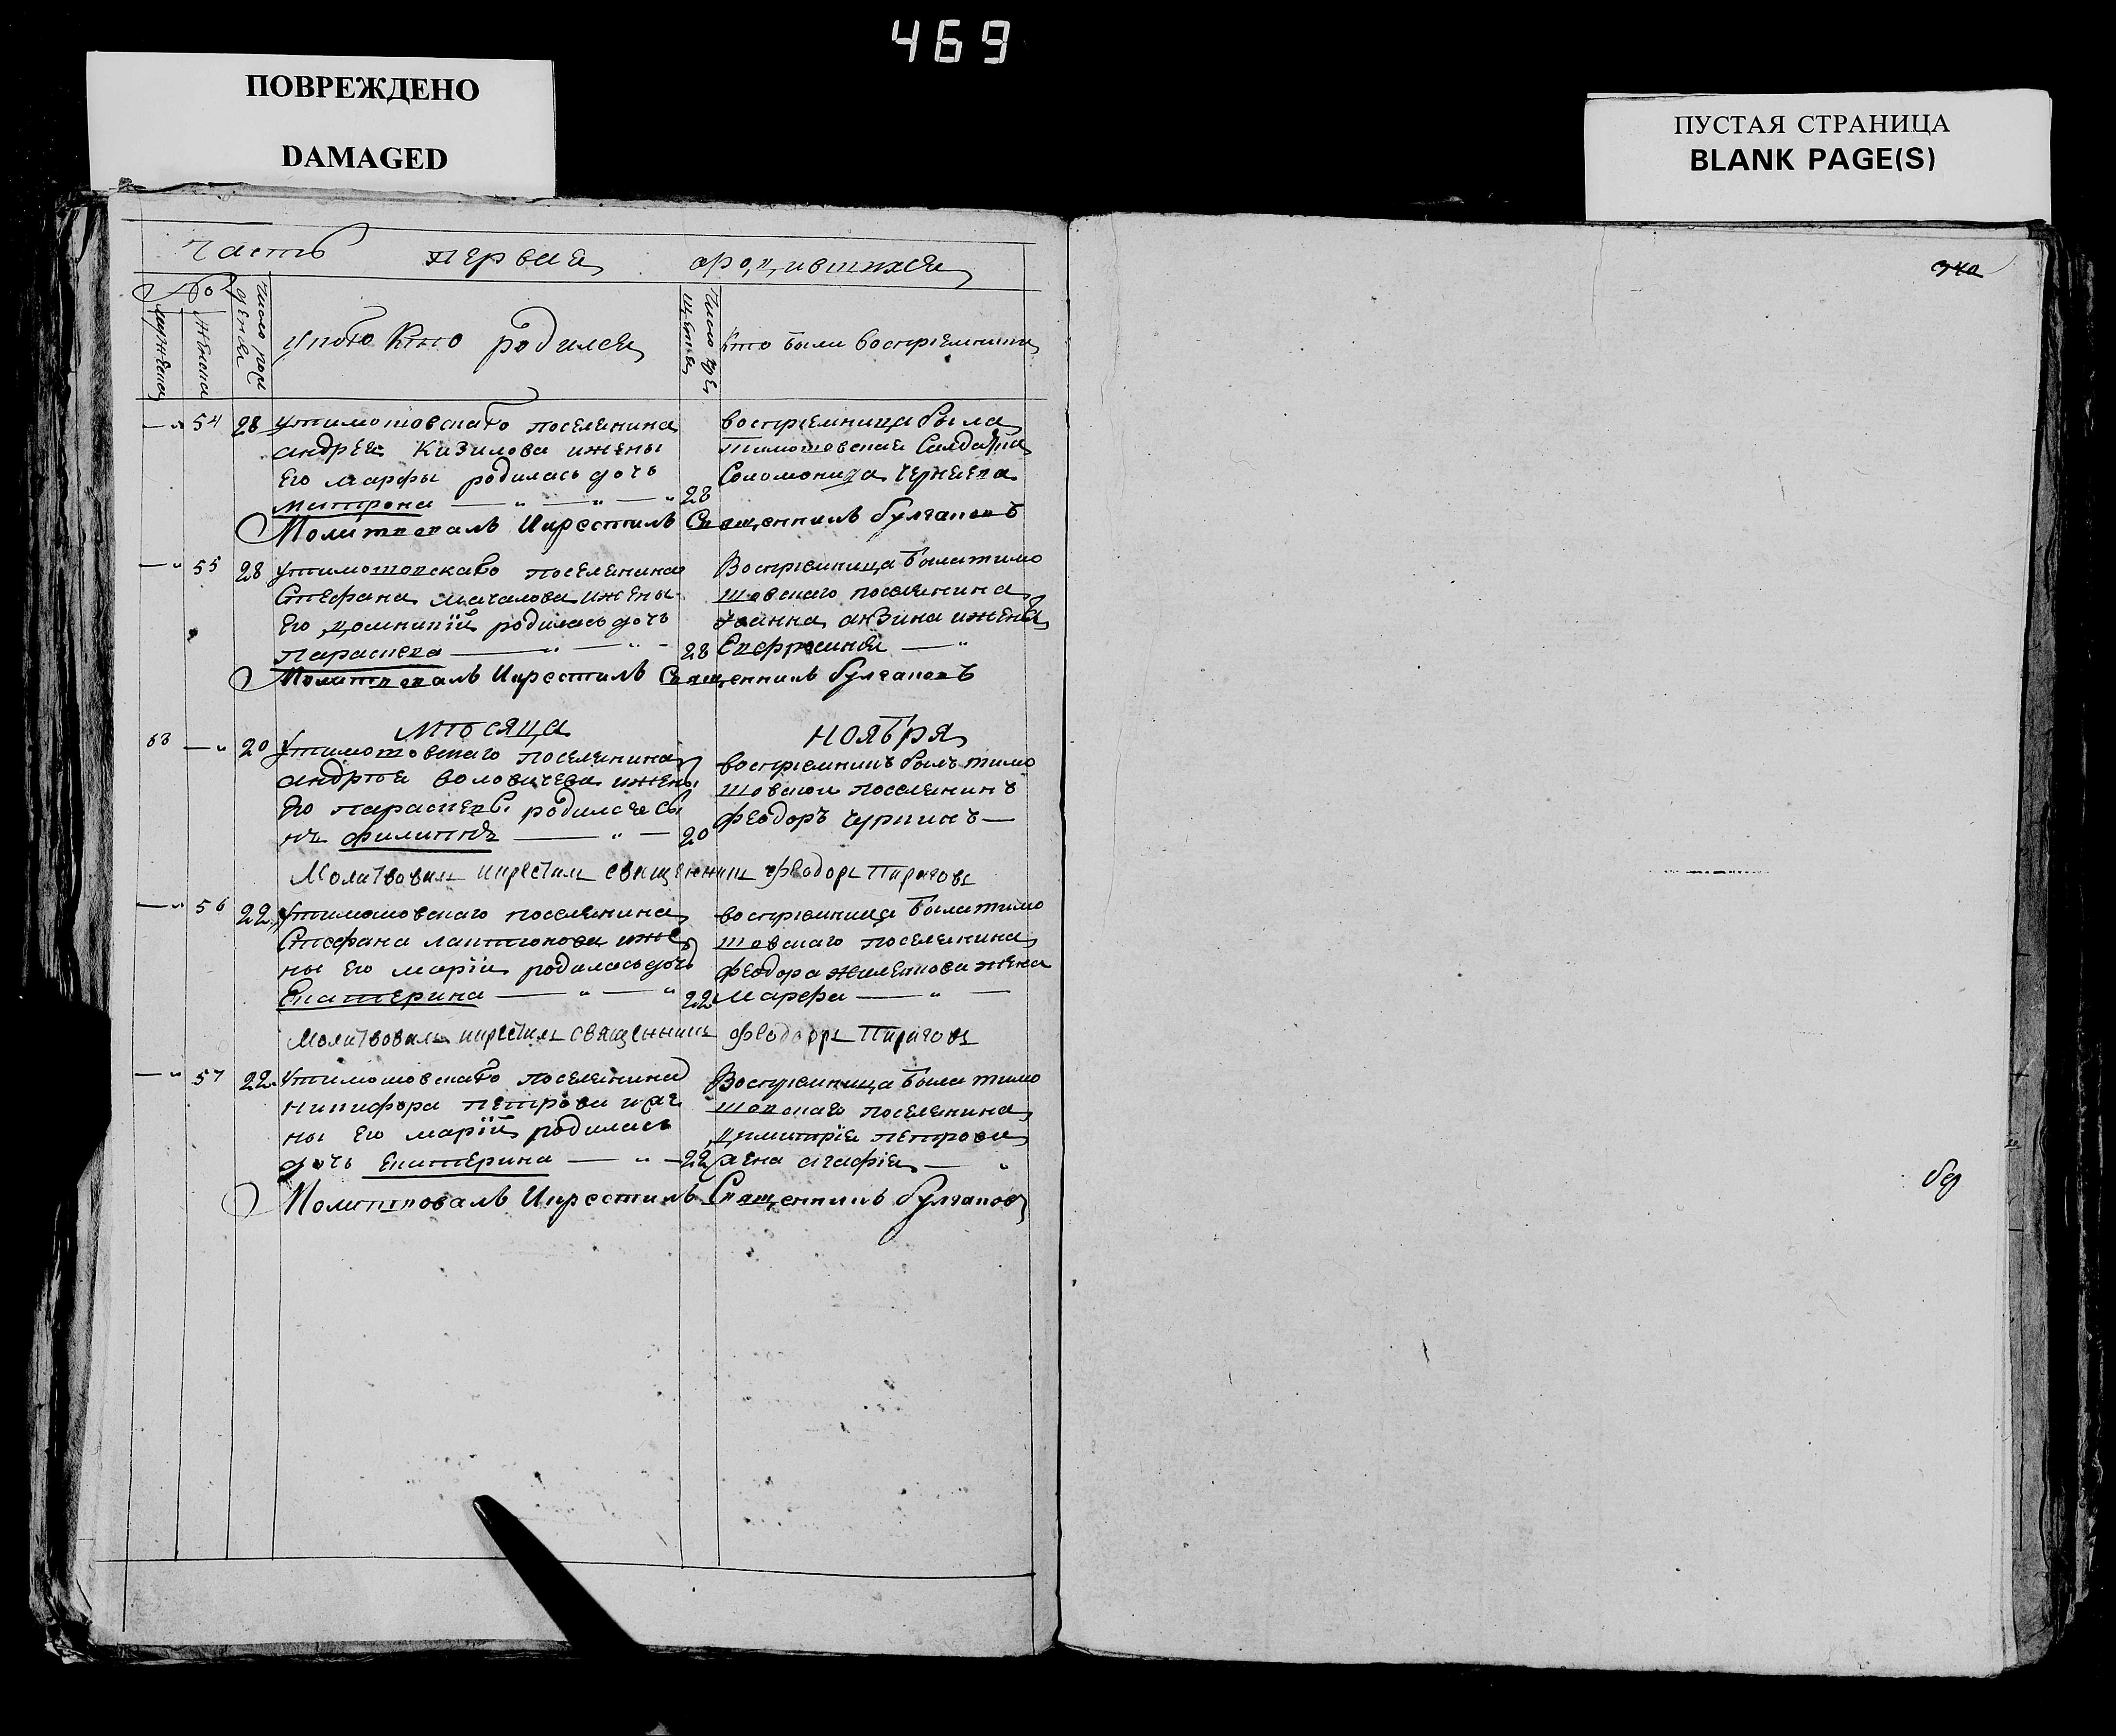 469
ПОВРЕЖДЕНО
DAMAGED
ПУСТАЯ СТРАНИЦА
BLANK PAGE(S)
Часть первая
родившихся
№
мужеска
женска
Число рож
дения
у кого кто родился
Число кре
щения
кто были восприемники
54 28 утимошовскаго поселенина
андрея Кизилова ижены
его марфы родилась дочь
матрона 28
восприемница была
тимошовская Салдатка
Соломонида
Молитвовалъ Икрестилъ Священникъ булгаковъ
55 28 утимошовскаго поселенина
Стефана мачалова ижены
его домникiи родилась дочь
Параскева 28
Воспрiемница была тимо
шовскаго поселенина
Iоанна анзина жена
Евфросинiя
Молитвовалъ Икрестилъ Священникъ булгаковъ
мѣсяца ноября
63 20 утимошовскаго поселенина
андрея воловичева ижены
Его параскевы родился сы
нъ филиппъ 20
воспрiемникъ былъ тимо
шовской поселенинъ
феодоръ чуркинъ
Молитвовалъ икрестилъ священникъ феодоръ Пироговъ
56 22 утимошовскаго поселенина
Стефана лактионова иже
ны его марiи родилась дочь
Екатерина 22
воспрiемница была тимо
шовскаго поселенина
феодора жена
Марфа
Молитвовалъ икрестилъ священникъ феодоръ Пироговъ
57 22 утимошовскаго поселенина
никифора петрова иже
ны его марiи родилась
дочь екатерина 22
Воспрiемница была тимо
шовскаго поселенина
димитрiя петрова
жена агафiя
Молитвовалъ Икрестилъ Священникъ булгаковъ
340